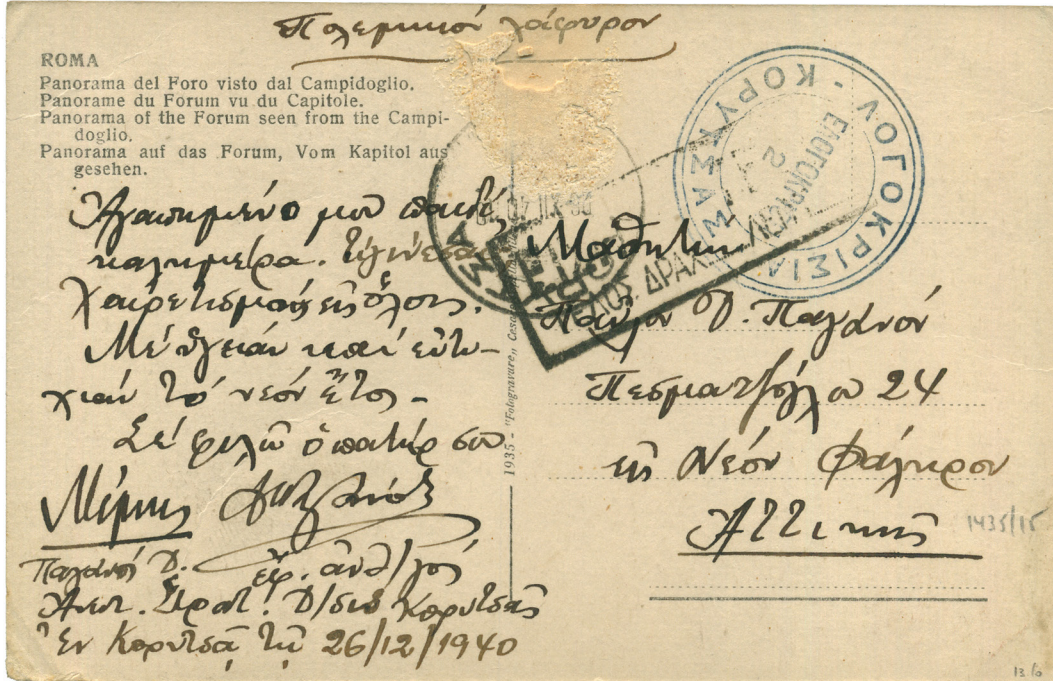 Πολεμικόν λάφυρον
ROMA
Panorama del Foro visto dal Campidoglio.
Panorame du Forum vu du Capitole.
Panorama of the Forum seen from the Campi-
doglio.
Panorama auf das Forum, Vom Kapitol aus
gesehen.
Ἀγαπημένο μου παιδί
καλημέρα. Ὑγιαίνω
χαιρετισμούς εἰς ὅλους.
Μέ ὑγείαν καί εὐτυ-
χίαν τό νέον ἔτος -
Σέ φιλῶ ὁ πατήρ σου
Μίμης
Παγάνος Δ. ἐφ. ἀνθ/γός
Ἀνωτ. Στρατ. Δ/σις Κορυτσᾶς
Ἐν Κορυτσᾷ τῇ 26/12/1940
1935 - "Fotogravure" Cesa
ΛΟΓΟΚΡΙΣΙΑ
ΚΟΡΥΚΣΑΣ
2
ΤΕΛΟΣ ΔΡΑΧ
Μαθητήν
Παῦλον Δ. Παγάνον
Πεσματζόγλου 24
εἰς Νέον Φάληρον
Ἀττικῆς
1435/15
13.10